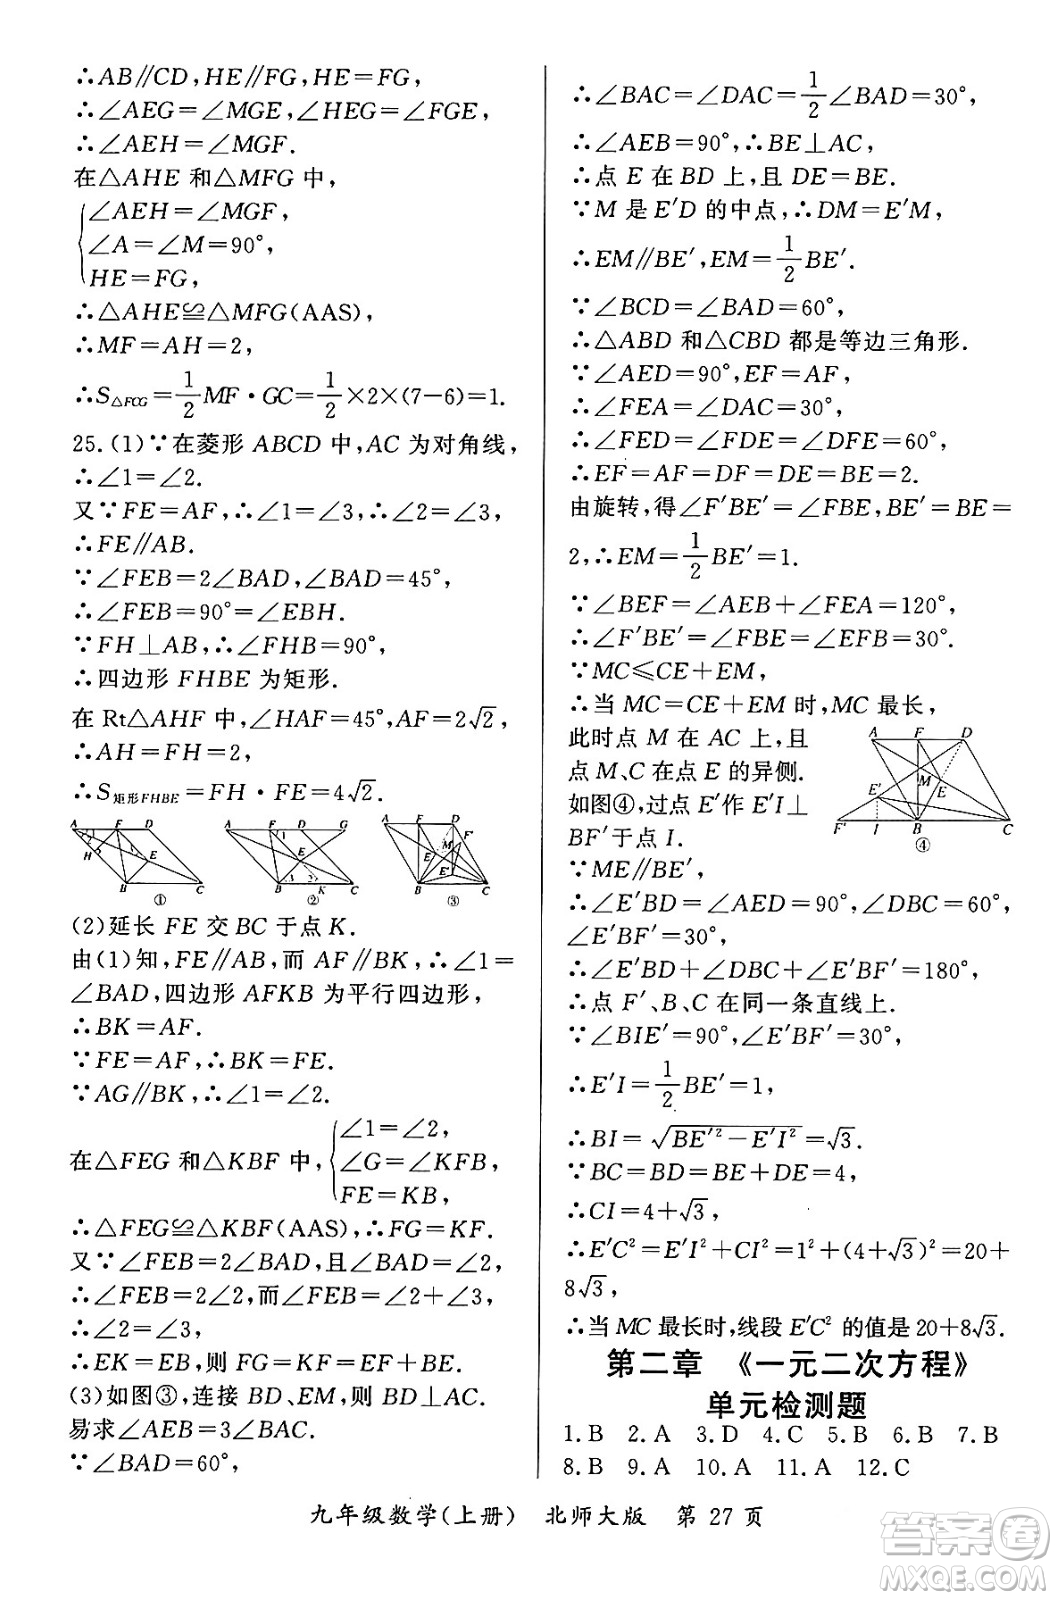 ∴AB∥CD,HE∥FG,HE=FG,
∴∠AEG=∠MGE,∠HEG=∠FGE,
∴∠AEH=∠MGF.
在△AHE 和△MFG 中,
∠AEH=∠MGF,
∠A=∠M=90°,
HE=FG,
∴△AHE≌△MFG(AAS),
∴MF=AH=2,
∴S△FCG=1/2MF·GC=1/2×2×(7-6)=1.
25.(1)∵在菱形 ABCD 中,AC 为对角线,
∴∠1=∠2.
又∵FE=AF,∴∠1=∠3,∴∠2=∠3,
∴FE∥AB.
∵∠FEB=2∠BAD,∠BAD=45°,
∴∠FEB=90°=∠EBH.
∵FH⊥AB,∴∠FHB=90°,
∴四边形 FHBE 为矩形.
在 Rt△AHF 中,∠HAF=45°,AF=2√2,
∴AH=FH=2,
∴S矩形FHBE=FH·FE=4√2.
A F D H E B C ①
A F D G E B K C ②
A F D M E E' F' B C ③
(2)延长 FE 交 BC 于点 K.
由(1)知,FE∥AB,而 AF∥BK,∴∠1=
∠BAD,四边形 AFKB 为平行四边形,
∴BK=AF.
∵FE=AF,∴BK=FE.
∵AG∥BK,∴∠1=∠2.
在△FEG 和△KBF 中,
∠1=∠2,
∠G=∠KFB,
FE=KB,
∴△FEG≌△KBF(AAS),∴FG=KF.
又∵∠FEB=2∠BAD,且∠BAD=∠2,
∴∠FEB=2∠2,而∠FEB=∠2+∠3,
∴∠2=∠3,
∴EK=EB,则 FG=KF=EF+EB.
(3)如图③,连接 BD,EM,则 BD⊥AC.
易求∠AEB=3∠BAC.
∵∠BAD=60°,
∴∠BAC=∠DAC=1/2∠BAD=30°,
∴∠AEB=90°,∴BE⊥AC,
∴点 E 在 BD 上,且 DE=BE.
∵M 是 E'D 的中点,∴DM=E'M,
∴EM∥BE',EM=1/2BE'.
∵∠BCD=∠BAD=60°,
∴△ABD 和△CBD 都是等边三角形.
∵∠AED=90°,EF=AF,
∴∠FEA=∠DAC=30°,
∴∠FED=∠ADE=∠DFE=60°,
∴EF=AF=DF=DE=BE=2.
由旋转,得∠F'BE'=∠FBE,BE'=BE=
2,∴EM=1/2BE'=1.
∵∠BEF=∠AEB+∠FEA=120°,
∴∠F'BE'=∠FBE=∠EFB=30°.
∵MC≤CE+EM,
∴当 MC=CE+EM 时,MC 最长,
此时点 M 在 AC 上,且
点 M、C 在点 E 的异侧.
如图④,过点 E'作 E'I⊥
BF'于点 I.
A F D M E E' F' I B C ④
∵ME∥BE',
∴∠E'BD=∠AED=90°,∠DBC=60°,
∠E'BF'=30°,
∴∠E'BD+∠DBC+∠E'BF'=180°,
∴点 F'、B、C 在同一条直线上.
∵∠BIE'=90°,∠E'BF'=30°,
∴E'I=1/2BE'=1,
∴BI=√BE'²-E'I²=√3.
∵BC=BD=BE+DE=4,
∴CI=4+√3,
∴E'C²=E'I²+CI²=1²+(4+√3)²=20+
8√3,
∴当 MC 最长时,线段 E'C² 的值是 20+8√3.
第二章 《一元二次方程》
单元检测题
1.B 2.A 3.D 4.C 5.B 6.B 7.B
8.B 9.A 10.A 11.A 12.C
九年级数学(上册) 北师大版 第 27 页
答案圈
MXQE.COM